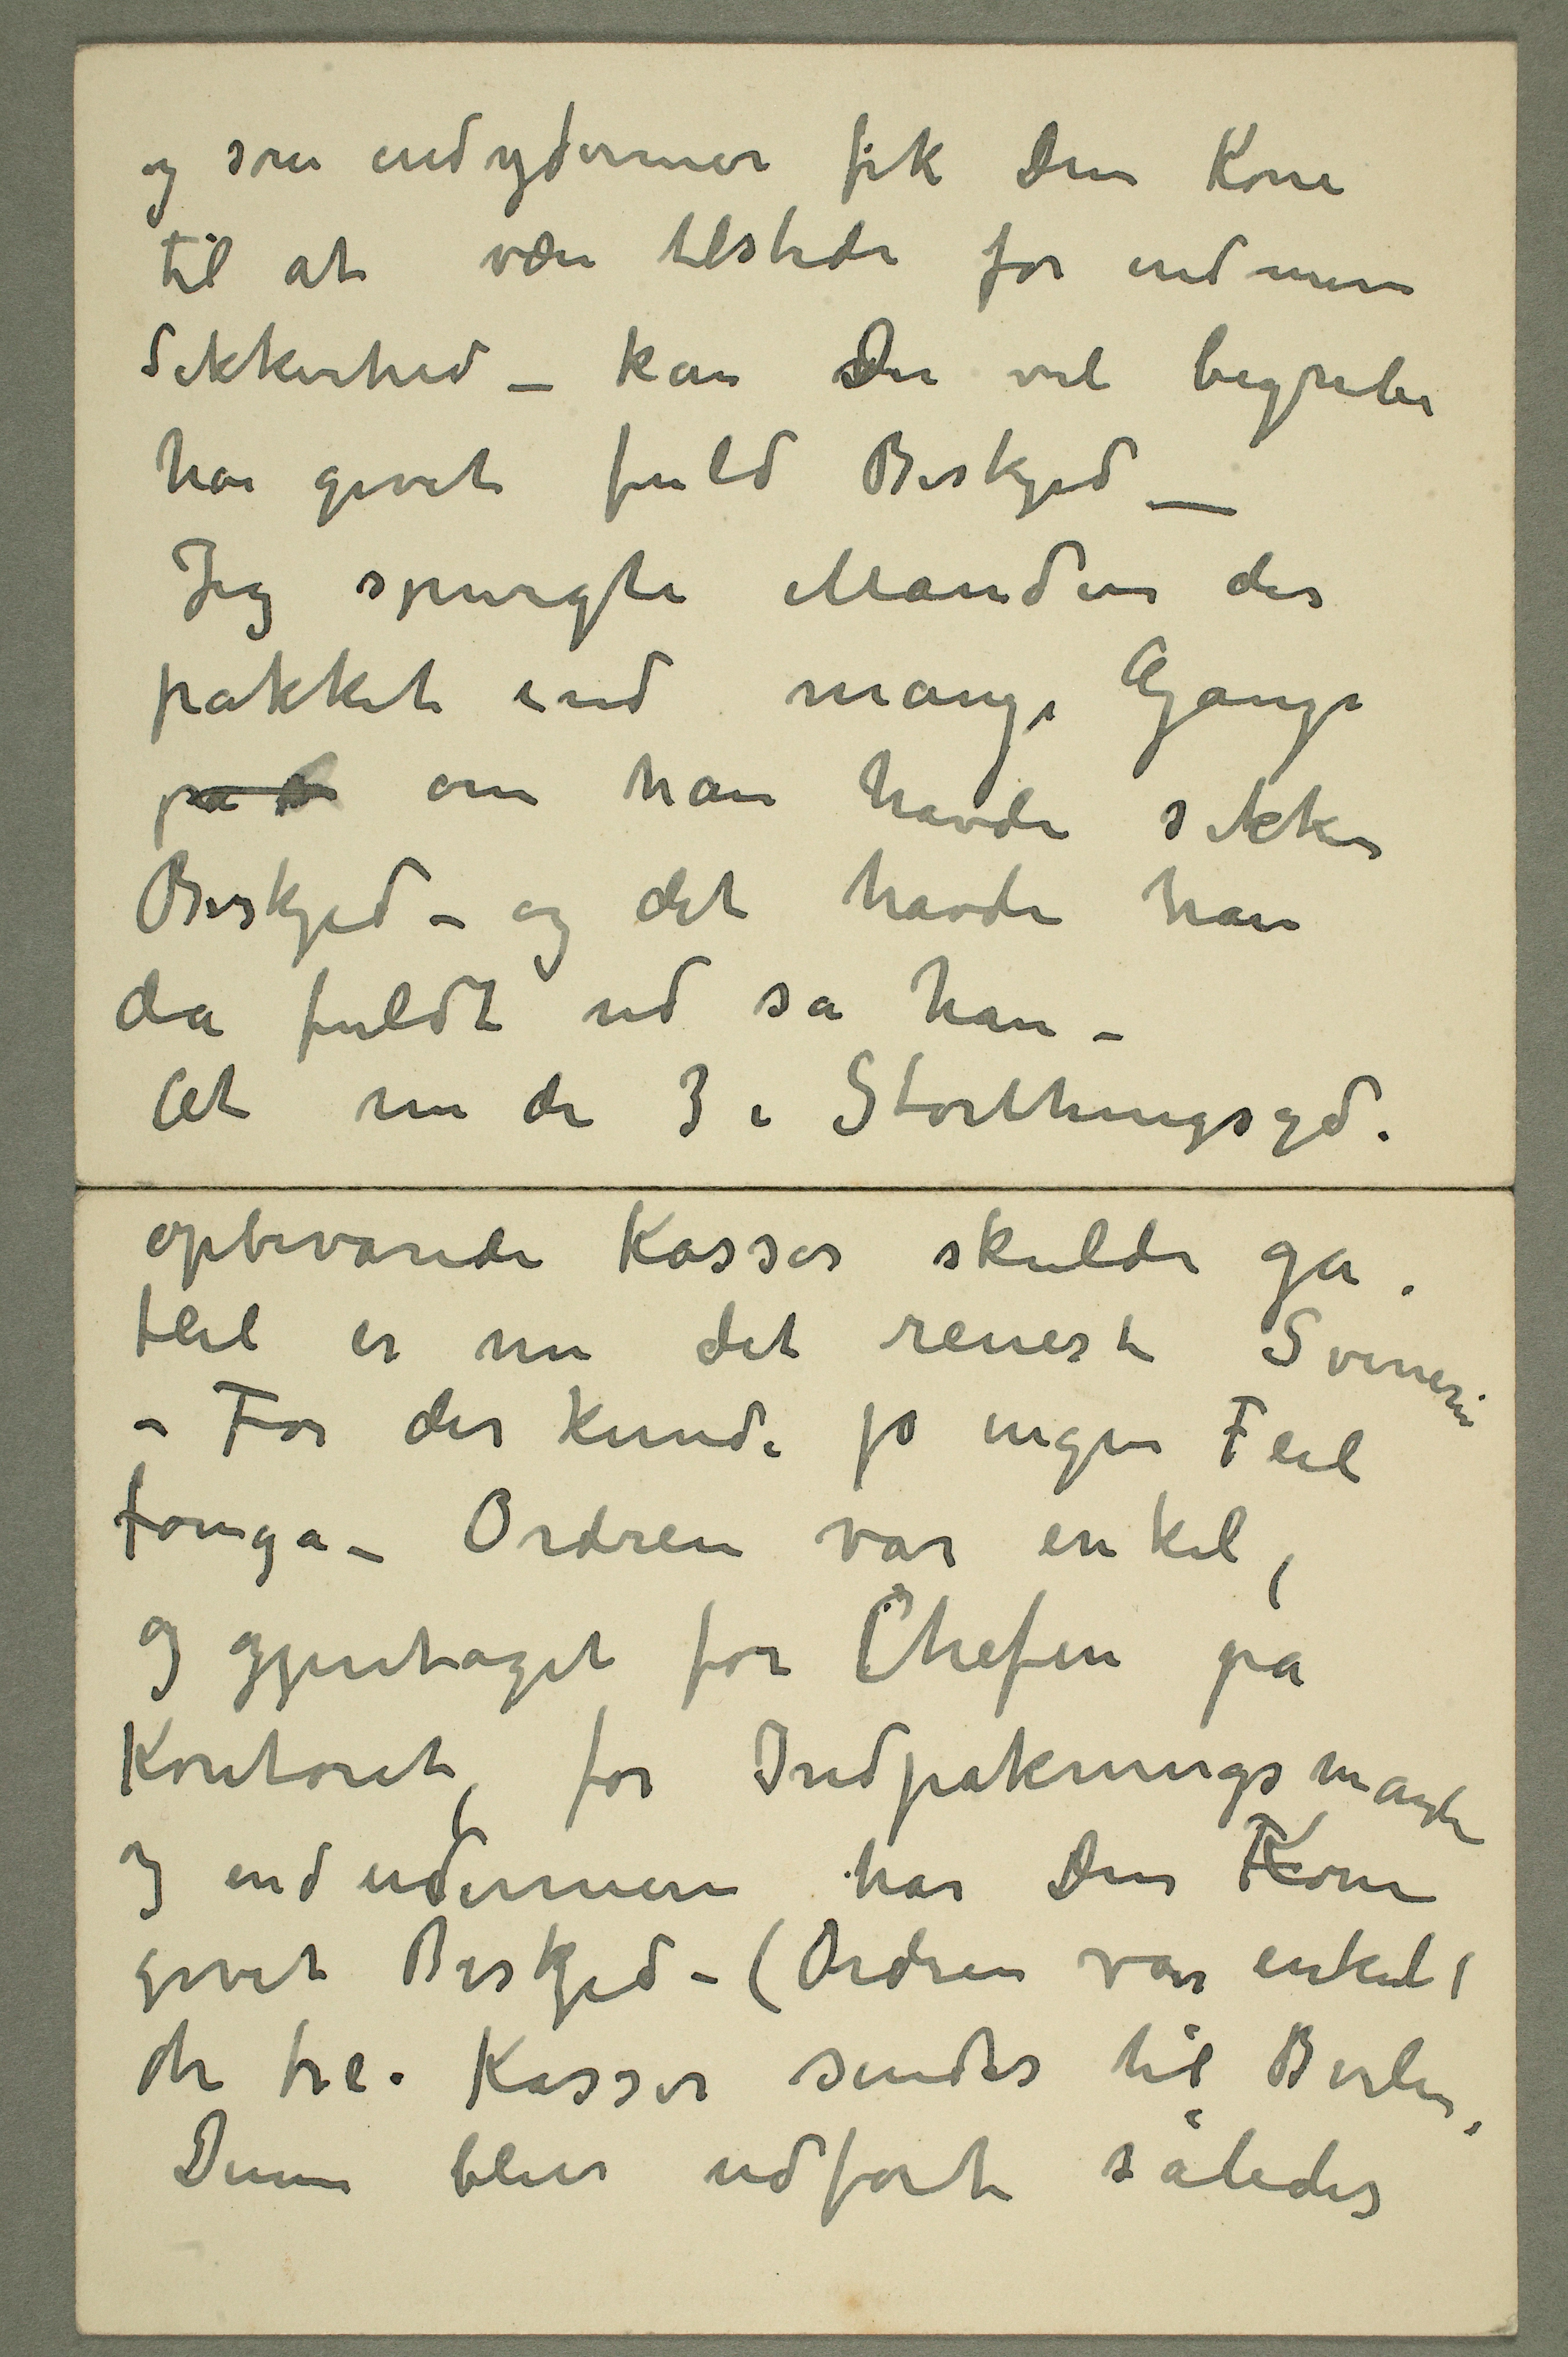 og som endydermer fik Din Kone
til at være tilstede for end mere
Sikkerhed – kan Du vel begribe
har givet fuld Beskjed –
Jeg spurgte Manden der
pakket ind mange Gange
om han havde sikker
Beskjed – og det havde han
da fuldt ud sa han –
At nu de 3 i Storthingsgd.
opbevarede Kasser skulde ga.
feil er nu det reneste Svineri
– For der kunde jo ingen Feil
foregå – Ordren var enkel,
og gjentaget for Chefen på
Kontoret, for Indpakningsmanden
og endudermere har Din Kone
givet Beskjed – (Ordren var enkel)
de tre. Kasser sendes til Berlin.
Denne blev udført således